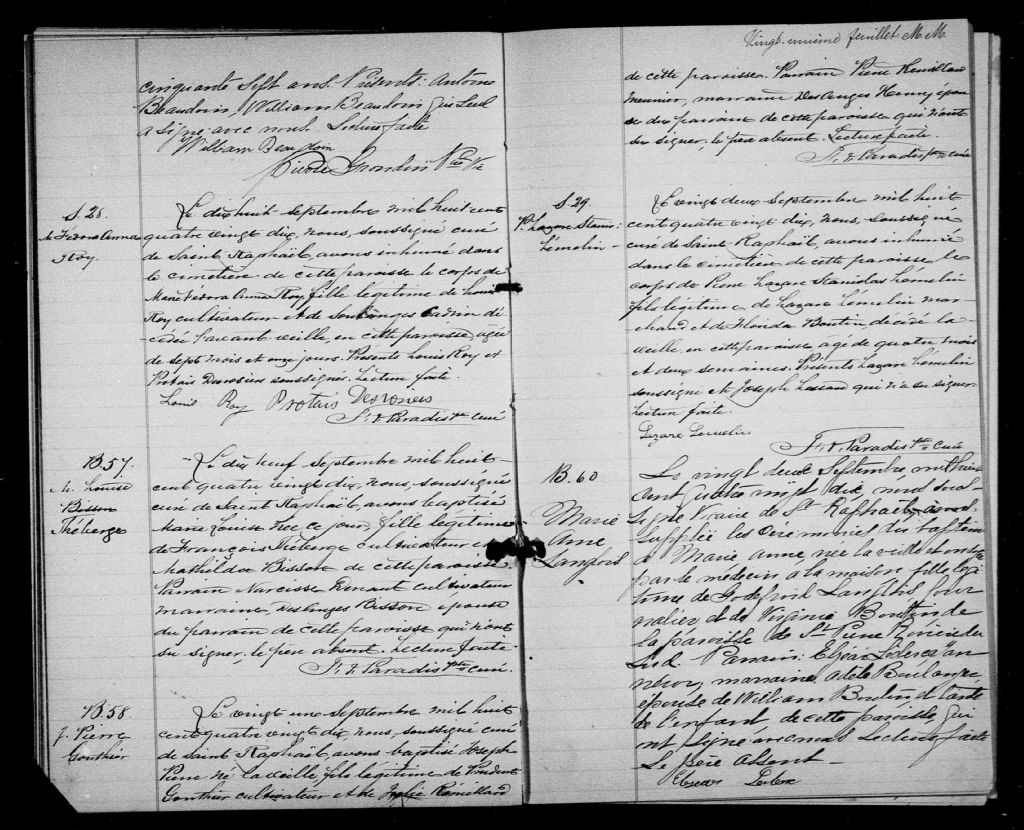 cinquante sept ans. Présents: Antoine
Beaudoin, William Beaudoin qui seul
a signé avec nous. Lecture faite
William Beaudoin
Pierre Grondin Ptre Vic
S. 28.
M. Fédora Anna
Roy.
Le dix huit septembre mil huit cent
quatre vingt dix, nous, soussigné curé
de Saint Raphaël, avons inhumé dans
le cimetière de cette paroisse le corps de
Marie Fédora Anna Roy, fille légitime de Louis
Roy cultivateur et de Soulanges
cédée l'avant veille, en cette paroisse, agée
de sept mois et onze jours. Présents Louis Roy et
Protais Desrosiers soussignés. Lecture faite.
Louis Roy Protais Desrosiers
Paradis Ptre curé
B. 57.
M. Louise
Bisson
Théberge
Le dix neuf septembre mil huit
cent quatre vingt dix, nous, soussigné
curé de Saint Raphaël, avons baptisé
Marie Louise née ce jour, fille légitime
de François Théberge cultivateur et
Mathilda Bisson de cette paroisse.
Parrain Narcisse cultivateur
marraine, Desanges Bisson épouse
du parrain de cette paroisse qui n'ont
su signer, le père absent. Lecture faite
Paradis Ptre curé
B. 58.
J. Pierre
Gonthier
Le vingt une septembre mil huit
cent quatre vingt dix, nous, soussigné curé
de Saint Raphaël, avons baptisé Joseph
Pierre né la veille, fils légitime de Prudent
Gonthier cultivateur et de Rémillard
Vingt-unième feuillet. M. M.
de cette paroisse. Parrain Pierre Rémillard
meunier, marraine Desanges Henry épou
se du parrain de cette paroisse qui n'ont
su signer, le père absent. Lecture faite.
Paradis Ptre curé
S. 29.
P. Lazare Stanis:
Lémelin -
Le vingt deux septembre mil huit
cent quatre vingt dix, nous, soussigné
curé de Saint Raphaël, avons inhumé
dans le cimetière de cette paroisse le
corps de Pierre Lazare Stanislas Lémelin
fils légitime de Lazare Lémelin mar-
chand et de Florida Boutin, décédé la
veille, en cette paroisse, agé de quatre mois
et deux semaines. Présents Lazare Lémelin
soussigné et Joseph qui n'a su signer.
Lecture faite.
Lazare Lemelin
Paradis Ptre curé
B. 60
Marie
Anne
Langlois
Le vingt deux Septembre mil huit
cent quatre vingt dix nous sous
signé Vicaire de St Raphaël avons
suppléé les cérémonies du baptême
à Marie Anne, née la veille et ondoyée
par le médecin à la maison fille légi
time de Godefroid Langlois jour
nalier et de Virginie Bouttin de
la paroisse de St Pierre Rivière du
Sud. Parrain: Elzéar Leclerc
marraine Boulanger,
épouse de William Boutin, et tante
de l'enfant de cette paroisse, qui
ont signé avec nous Lecture faite
Le père absent -
Elzear Leclerc